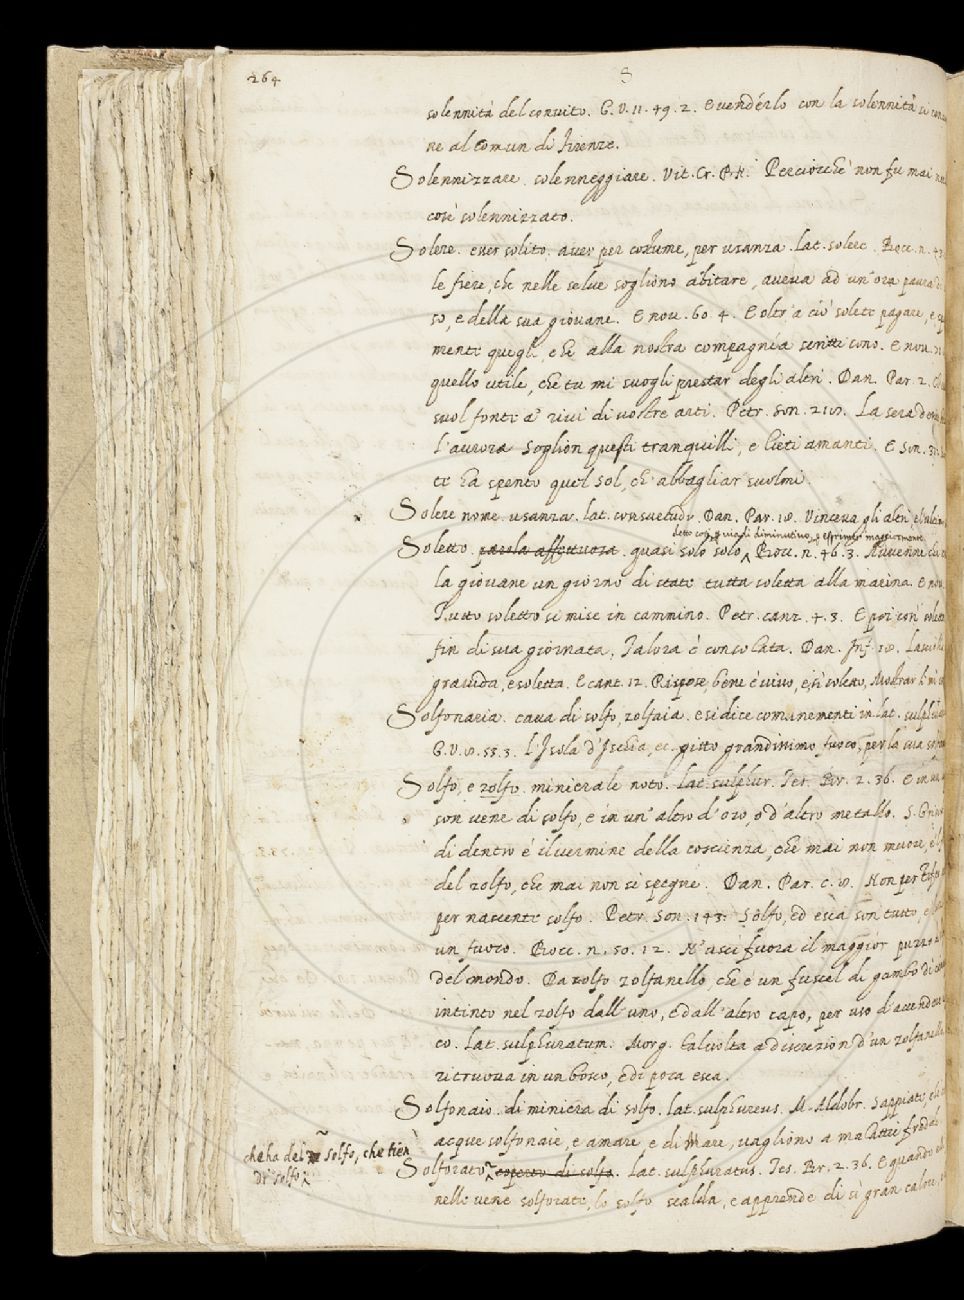 264
S
solennità del convito. G.V. 11. 49. 2. E vendérlo con la solennità si
ne al Comun di Firenze.
Solennizzare. solenneggiare. Vit. Cr. P.N. Perciocchè non fu mai
così solennizzato.
Solere. esser solito. aver per costume, per usanza. Lat. solere. Bocc. n. 43.
le fiere, che nelle selve sogliono abitare, aveva ad un'ora paura di
so, e della sua giovane. E nov. 60. 4. E oltr'a ciò solete pagare, e
mente quegli, che alla nostra compagnia scritti sono. E nov.
quello utile, che tu mi suogli prestar degli altri. Dan. Par. 2.
suol fonte a' rivi di vostre arti. Petr. Son. 218. La sera
l'aurora Soglion questi tranquilli, e lieti amanti. E Son.
te ha spento quel Sol, ch'abbagliar suolmi.
Solere nome. usanza. lat. consuetudo. Dan. Par. 18. Vinceva gli altri,
detto così, quasi diminutivo, p esprimer maggiormente
Soletto. parola affettuosa. quasi solo solo. Bocc. n. 46. 3. Avvenne
la giovane un giorno di state tutta soletta alla marina. E nov.
Tutto soletto si mise in cammino. Petr. canz. 4. 3. E poi così
fin di sua giornata, Talora è consolata. Dan. Inf. 18.
gravida, e soletta. E cant. 12. Rispose, bene è vivo, e sì soletto, Mostrar li mi
Solfonaria. cava di solfo, zolfaia. e si dice comunemente in lat.
G.V. 8. 53. 3. l'Isola d'Ischia, ec. gittò grandissimo fuoco, per la sua
Solfo, e zolfo. minerale noto. lat. sulphur. Tes. Br. 2. 36. E in
son vene di solfo, e in un'altro d'oro, o d'altro metallo.
di dentro è il vermine della coscienza, che mai non muore,
del zolfo, che mai non si spegne. Dan. Par. c. 8. Non per Tifeo
per nascente solfo. Petr. Son. 143. Solfo, ed esca son tutto, e
un fuoco. Bocc. n. 50. 12. N'uscì fuora il maggior puzzo
del mondo. Da zolfo zolfanello, che è un fuscel di gambo di
intinto nel zolfo dall'uno, e dall'altro capo, per uso d'accendere
co. Lat. sulphuratum. Morg. Talvolta a discrezion d'un zolfanello
ritruova in un bosco, e di poca esca.
Solfonaio. di miniera di solfo. lat. sulphureus. M. Aldobr. Sappiate, che
acque solfonaie, e amare, e di Mare, vagliono a malattie fredde
che ha del solfo, che tien
di solfo,
Solforato. coperto di solfo. Lat. sulphuratus. Tes. Br. 2. 36. E quando
nelle vene solforate, lo solfo scalda, e apprende di sì gran calore,